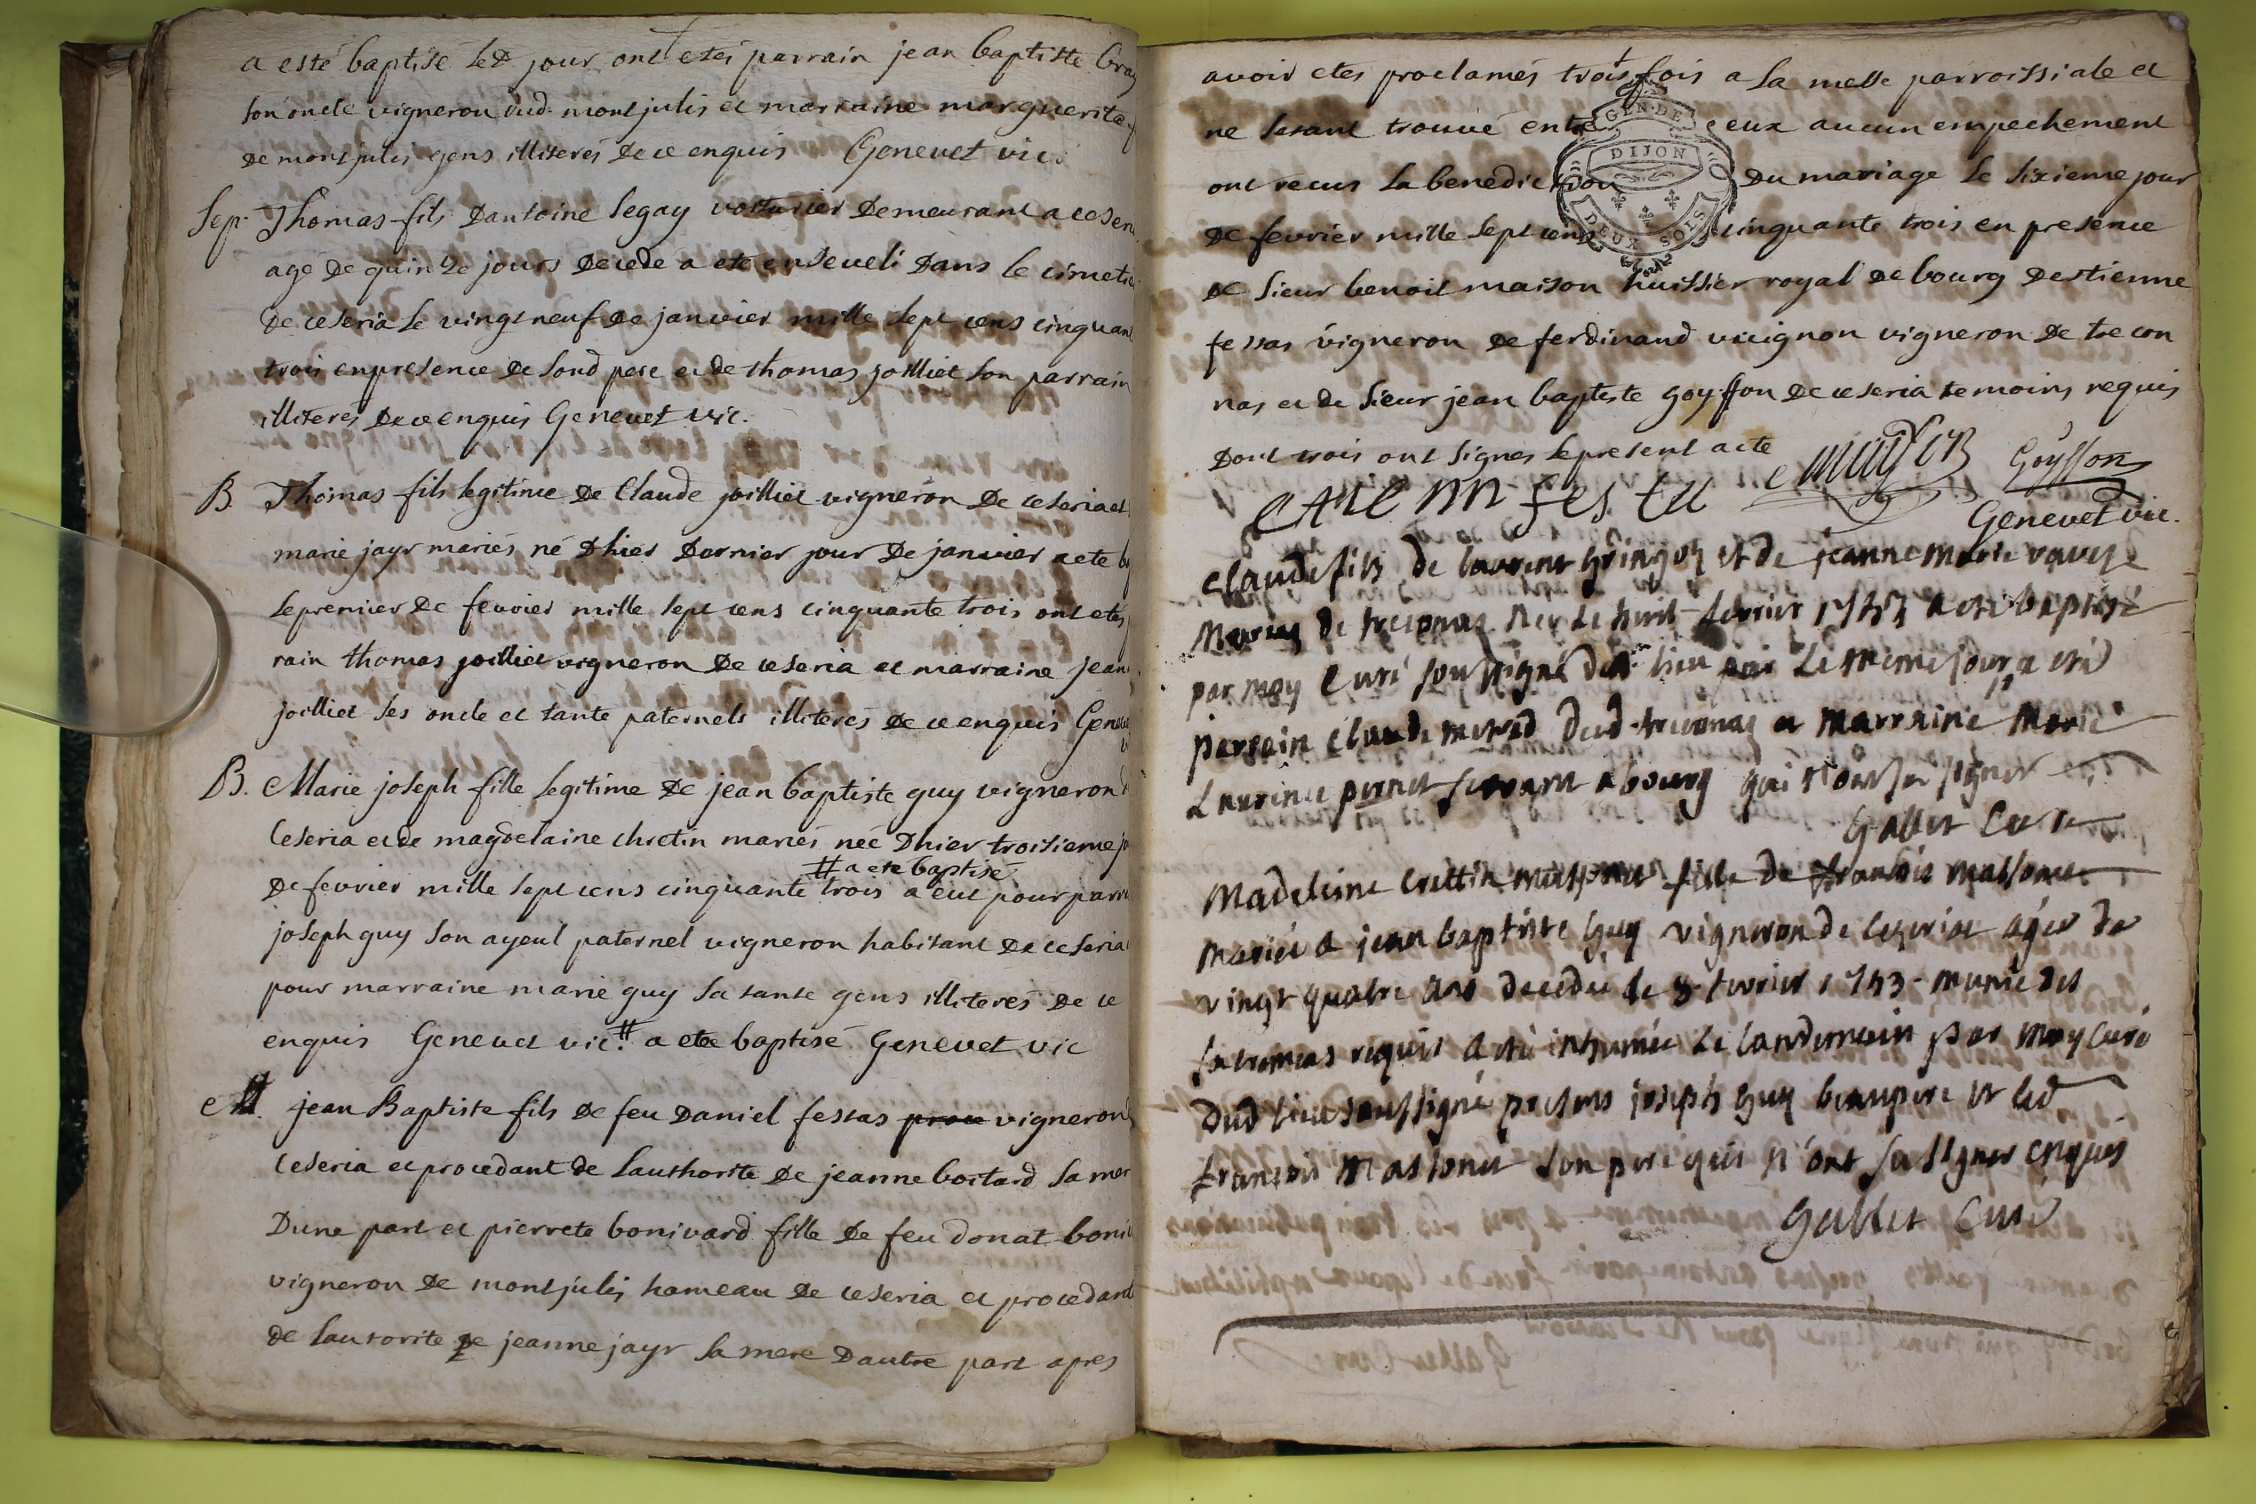 a esté baptisé led jour ont etes parrain jean baptiste
son oncle vigneron dud. montjulis et marraine marguerite
de montjulis gens illiterés de ce enquis Genevet vic.
Sep. Thomas fils dantoine legay voiturier demeurant a ceseria
agé de quinze jours decede a eté enseveli dans le cimeti
de ceseria le vingt neuf de janvier mille sept cens cinquant
trois en presence de sond pere et de thomas joilliet son parrain
illiterés de ce enquis Genevet vic.
B. Thomas fils legitime de Claude joilliet vigneron de ceseria et
marie jayr mariés né dhier dernier jour de janvier a ete b
le premier de fevrier mille sept cens cinquante trois ont etes
rain thomas joilliet vigneron de ceseria et marraine jean
joilliet ses oncle et tante paternels illiterés de ce enquis Genev
B. Marie joseph fille legitime de jean baptiste guy vigneron d
Ceseria et de magdelaine chretin mariés née dhier troisieme jo
# a ete baptisé
de fevrier mille sept cens cinquante trois a eut pour parra
joseph guy son ayeul paternel vigneron habitant de ceseria
pour marraine marie guy sa tante gens illiterés de ce
enquis Genevet vic. # a ete baptisé Genevet vic
M. jean Baptiste fils de feu daniel fessas vigneron
Ceseria et procedant de lauthorite de jeanne bostard sa mer
Dune part et pierrete bonivard fille de feu donat boni
vigneron de montjulis hameau de ceseria et procedant
de lautorite de jeanne jayr sa mere dautre part apres
avoir etes proclamés trois fois a la messe parroissiale et
ne sesant trouvé entre eux aucun empechement
ont recus la benediction du mariage le sixieme jour
GEN. DE
DIJON
DEUX SOLS
de fevrier mille sept cens cinquante trois en presence
de sieur benoit maison huissier royal de bourg destienne
fessas vigneron de ferdinand vuignon vigneron de trecon
nas et de sieur jean baptiste goyffon de ceseria temoins requis
dont trois ont signes le present acte
Goyffon
Genevet vic.
Claude fils de laurent gringoz et de jeanne marie
Maries de treconnas Nee le huit fevrier 1753 a eté baptisé
par moy Curé soussigné dud. lieu le meme jour a eté
parrain claude dud. treconnas et Marraine Marie
Laurence pernet servant a bourg qui n'ont su signer
Gallet Curé
Madeleine Crettin fille de francois massonet
Mariée a jean baptiste Guy vigneron de ceseriat agée de
vingt quatre ans decedée le 8 fevrier 1753 - munie des
sacremens requis a eté inhumée le landemain par moy Curé
dud lieu soussigné presens joseph guy beaupere et led
francois Massonet son pere qui n'ont su signer enquis
Gallet Curé